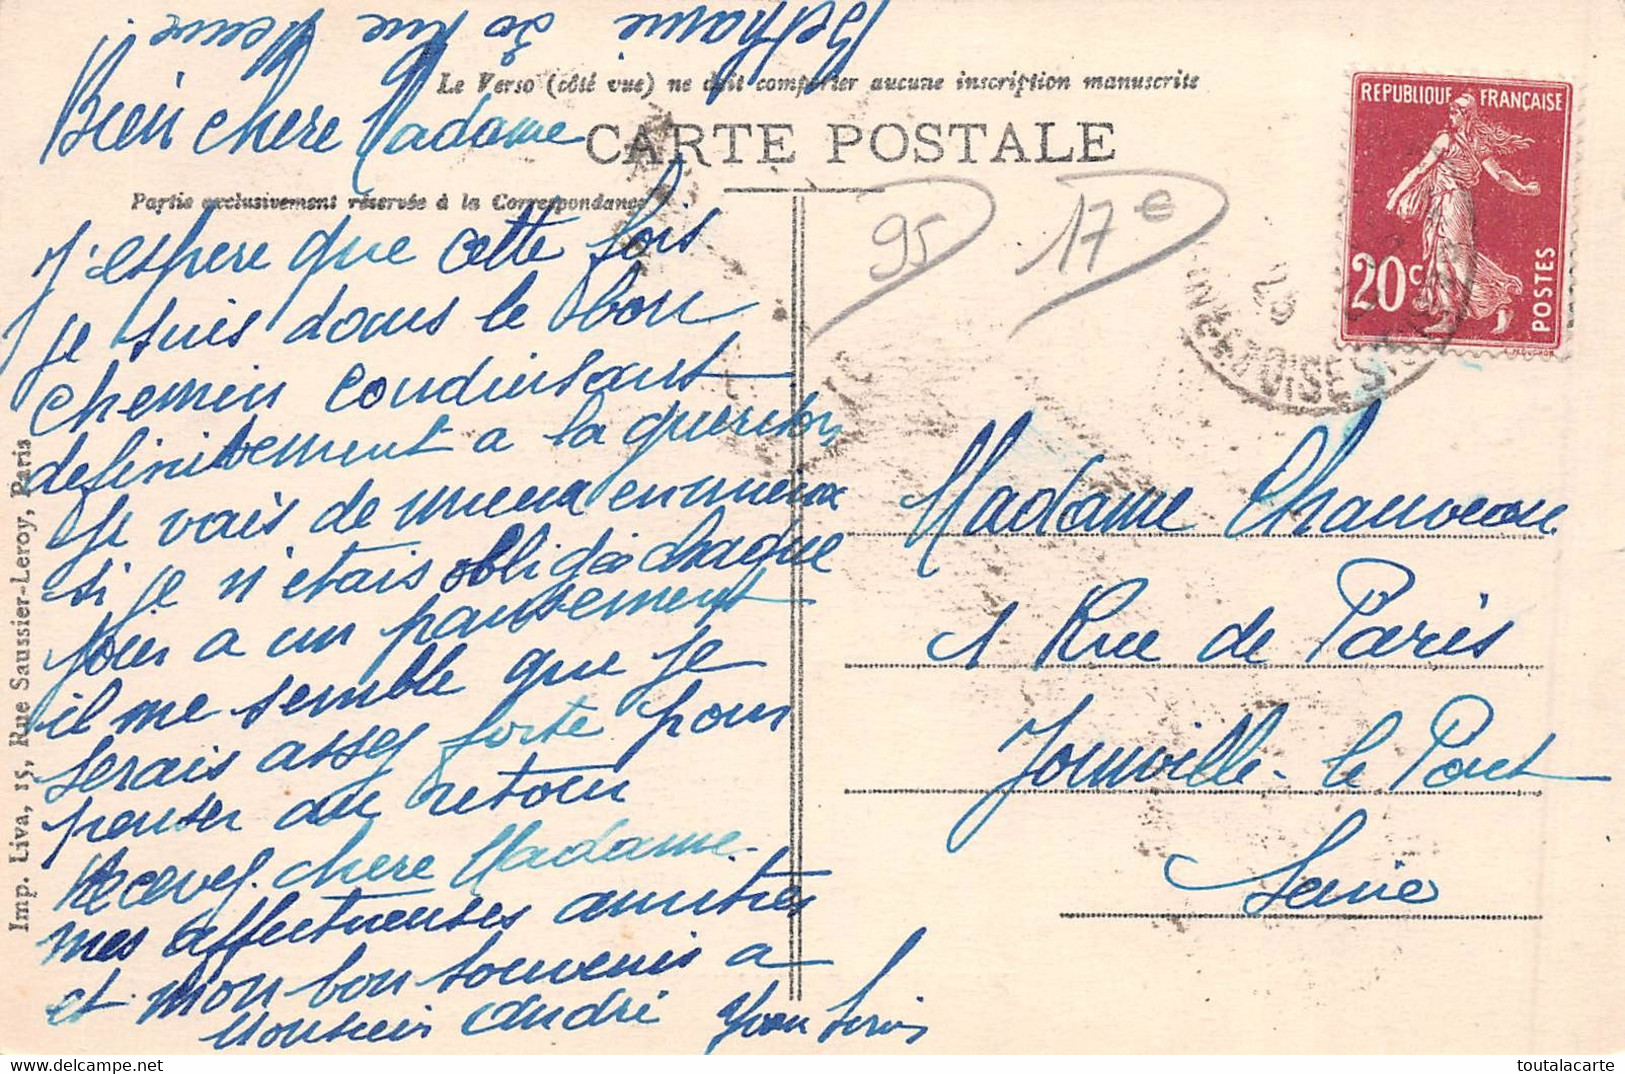 Bien chere Madame
Le Verso (côté vue) ne doit comporter aucune inscription manuscrite
CARTE POSTALE
Partie exclusivement réservée à la Correspondance
95
17€
REPUBLIQUE FRANÇAISE
20c
POSTES
J'espere que cette fois
je suis dans le bon
chemin conduisant
definitivement a la guerison
Je vais de mieux en mieux
si je n'etais obligée chaque
jour a un pansement
il me semble que je
serais assez forte pour
penser au retour
Recevez chere Madame
mes affectueuses amitiés
et mon bon souvenir a
Monsieur André
Madame Chauveau
1 Rue de Paris
Joinville-le Pont
Seine
Imp. Liva, 15, Rue Saussier-Leroy, Paris
delcampe.net
toutalacarte